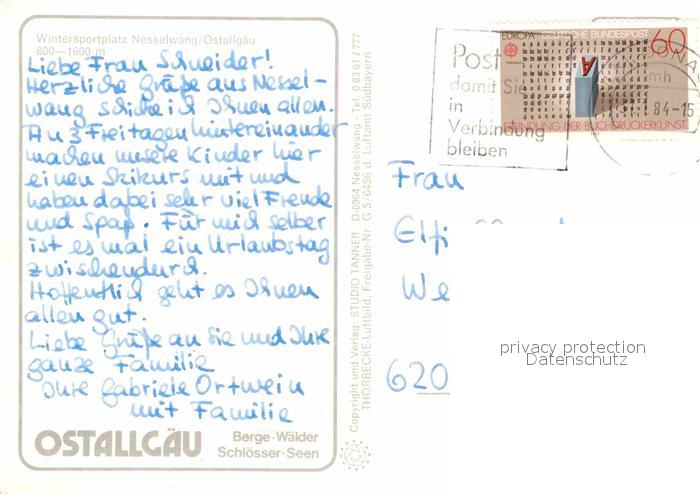 Wintersportplatz Nesselwang/Ostallgäu
800—1600 m
Liebe Frau Schneider!
Herzliche Grüße aus Nessel-
wang schicke ich Ihnen allen.
An 3 Freitagen hintereinander
machen unsere Kinder hier
einen Skikurs mit und
haben dabei sehr viel Freude
und Spaß. Für mich selber
ist es mal ein Urlaubstag
zwischendurch.
Hoffentlich geht es Ihnen
allen gut.
Liebe Grüße an Sie und Ihre
ganze Familie
Ihre Gabriele Ortwein
mit Familie
OSTALLGÄU
Berge·Wälder
Schlösser·Seen
Copyright und Verlag: STUDIO TANNER D-8964 Nesselwang - Tel. 0 83 61 / 777
THORBECKE-Luftbild, Freigabe-Nr. G 5/6456 d. Luftamt Südbayern
Post
damit Sie
in
Verbindung
bleiben
EUROPA DEUTSCHE BUNDESPOST 60
A
ERFINDUNG DER BUCHDRUCKERKUNST
84-15
Frau
Elfi
We
620
privacy protection
Datenschutz